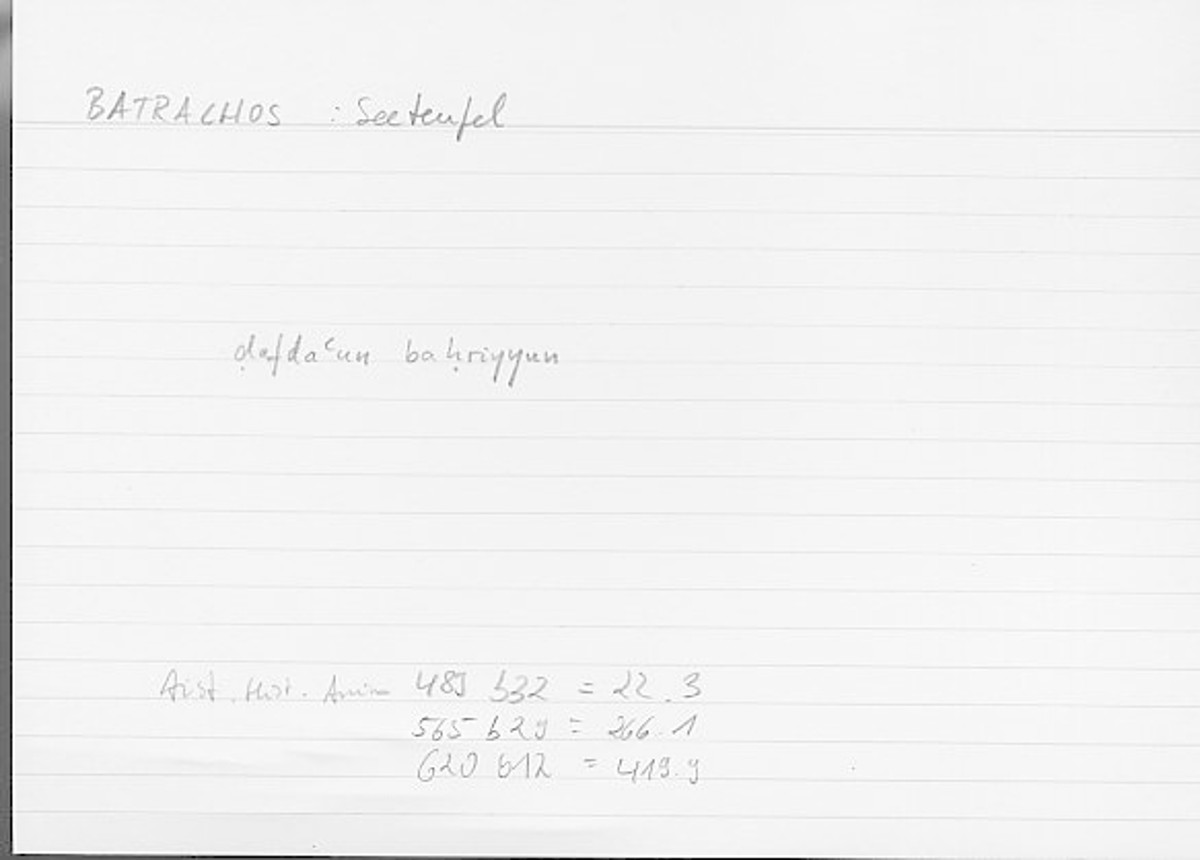 BATRACHOS : Seeteufel
ḍafdaʿun baḥriyyun
Arist. Hist. Anim 489 b32 = 22.3
565 b29 = 266.1
620 b12 = 419.9